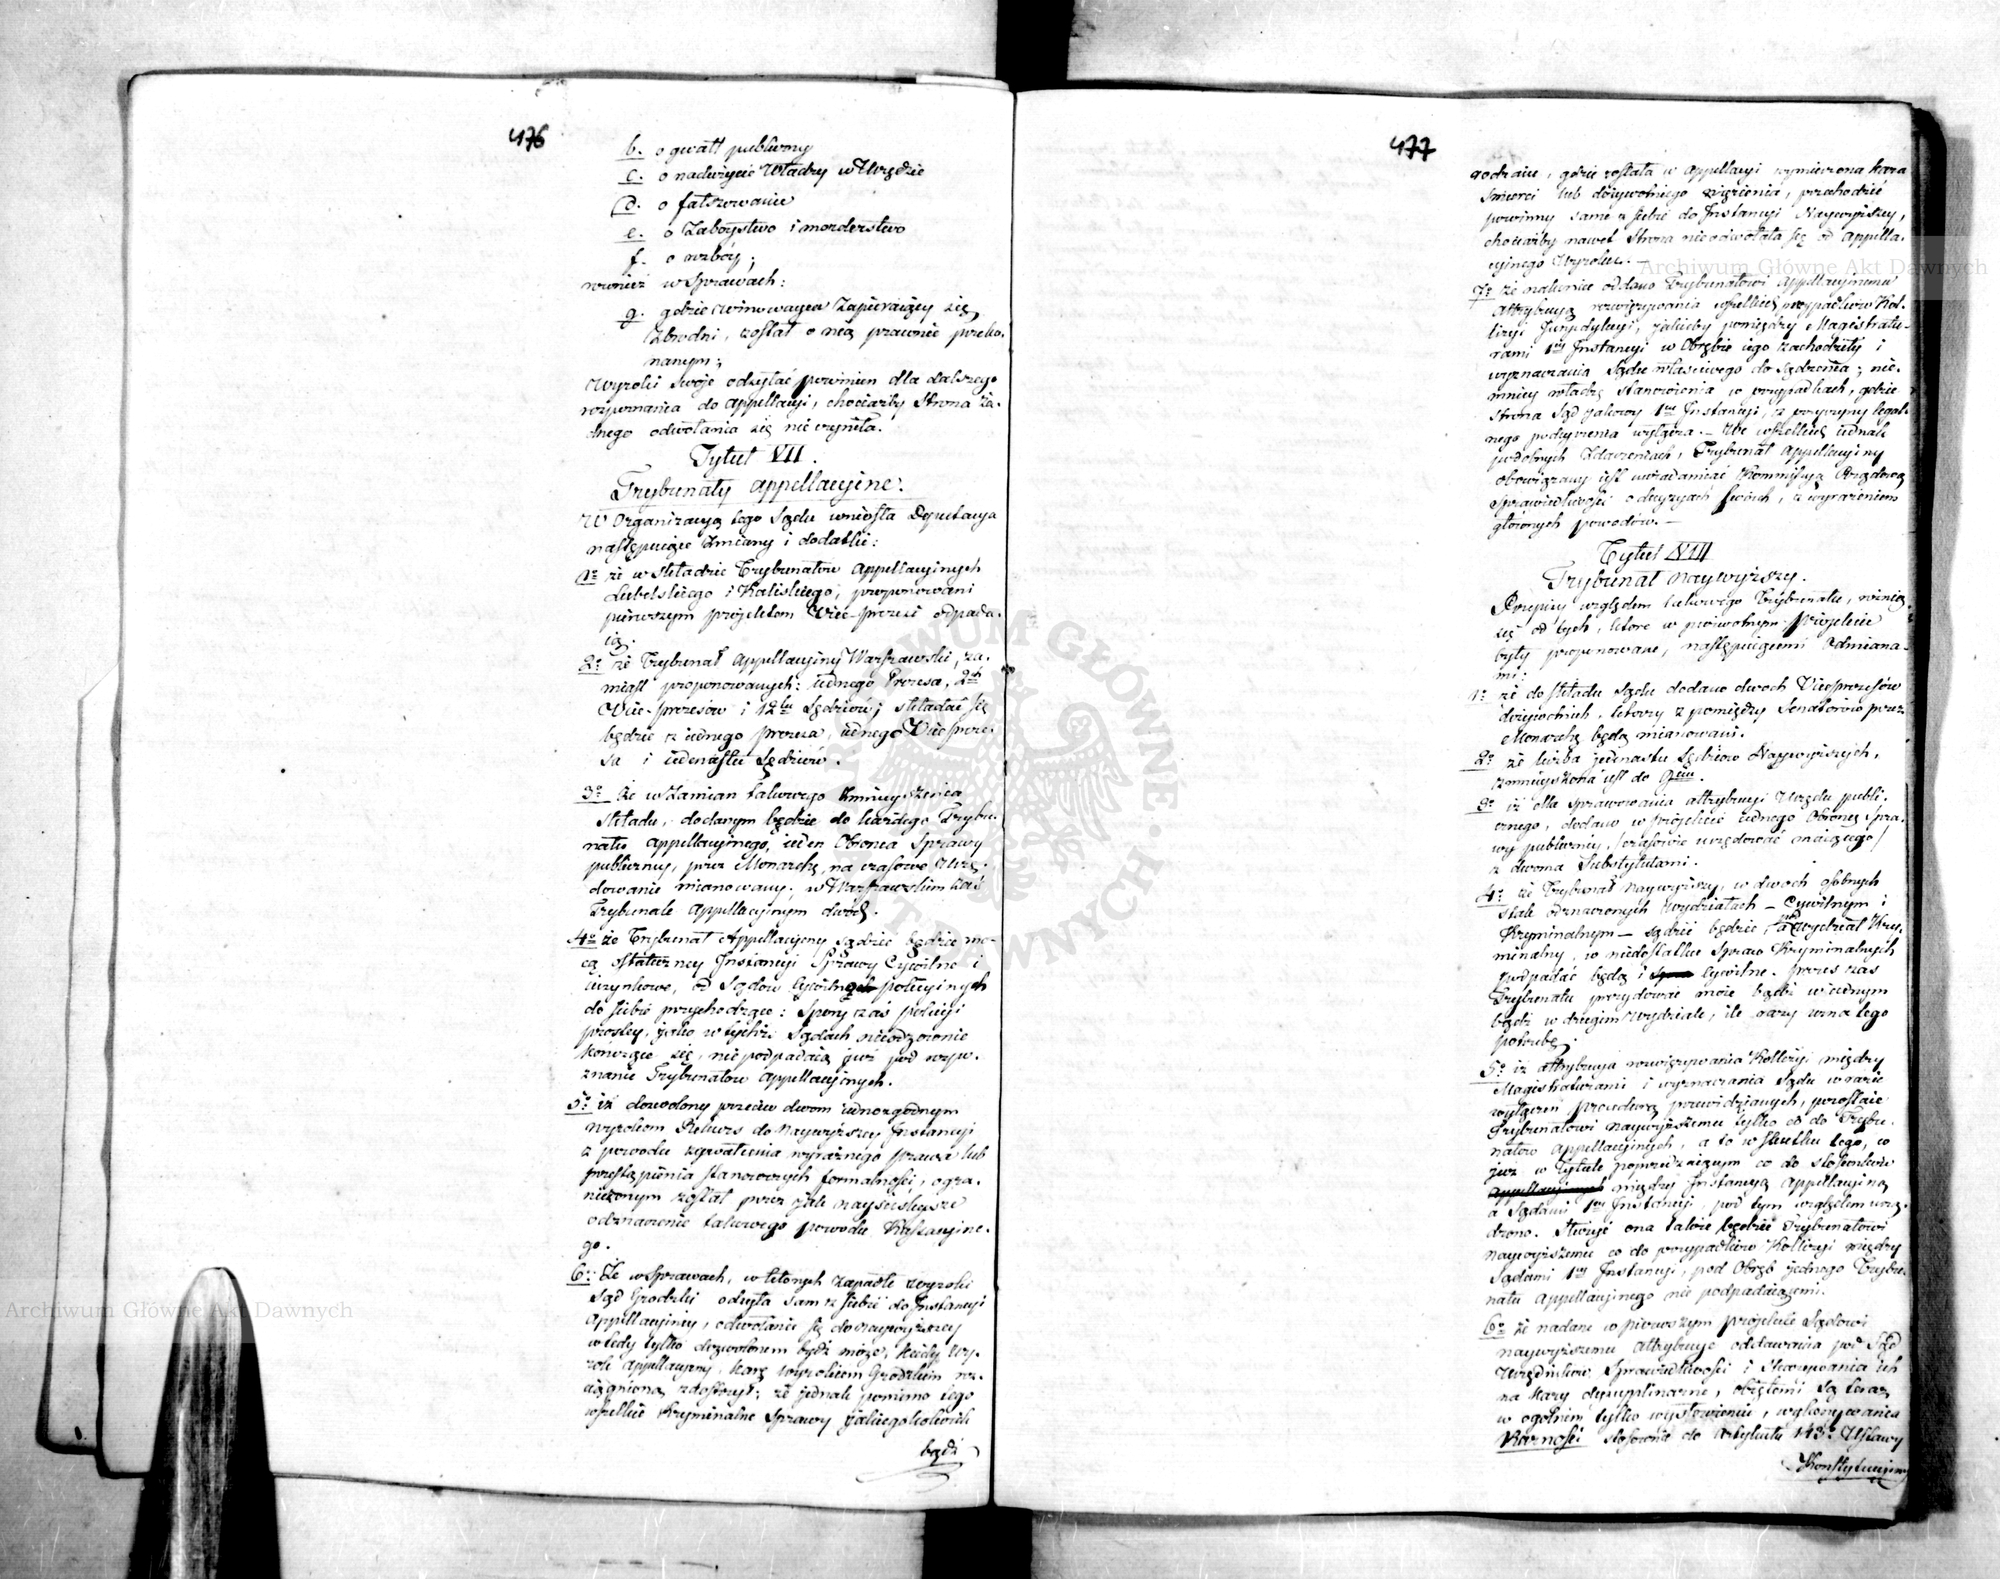 476
b. o gwałt publiczny
c. o nadużycie Władzy w Urzędzie
d. o fałszowanie
e. o Zabóystwo i morderstwo
f. o rozbóy;
również w Sprawach:
g. gdzie winowayca Zapieraiący się
Zbrodni, został o nią prawnie przeko-
nanym;
Wyroki swoje odsyłać powinien dla dalszego
rozpoznania do appellacyi, chociażby Strona ża-
dnego odwołania się nie czyniła.
Tytuł VII.
Trybunały appellacyine.
W Organizacyą tego Sądu wniosła Deputacya
następuiące Zmiany i dodatki:
1o że w składzie Trybunałów Appellacyinych
Lubelskiego i Kaliskiego, proponowani
pierwszym projektem Vice-prezesi odpada-
ią.
2o że Trybunał appellacyiny Warszawski, za-
miast proponowanych: iednego Prezesa, 2ch
Vice-prezesów i 12tu Sędziów; składać się
będzie z iednego prezesa, iednego Viceprezе-
sa i iedenastu Sędziów.
3o Że w Zamian takowego Zmnieyszenia
składu, dodanym będzie do każdego Trybu-
nału appellacyinego, ieden Obrońca Sprawy
publiczney, przez Monarchę na czasowe Urzę-
dowanie mianowany; w Warszawskim zaś
Trybunale appellacyinym dwóch.
4o że Trybunał Appellacyiny sądzić będzie mo-
cą ostateczney Instancyi Sprawy Cywilne i
uczynkowe, od Sądów policyinych
do siebie przychodzące: Spory zaś policyi
prostey, jako w tychże Sądach nieodzownie
kończące się, nie podpadaią już pod rozpo-
znanie Trybunałów appellacyinych.
5o iż dozwolony przeciw dwom iednozgodnym
wyrokom Rekurs do Naywyższey Instancyi
z powodu zgwałcenia wyraźnego prawa lub
przestąpienia stanowczych formalności, ogra-
niczonym został przez jak nayściśleysze
odznaczenie takowego powodu Kassacyine-
go.
6o Że w Sprawach, w których zapadłe wyroki
Sąd Grodzki odsyła sam z siebie do Instancyi
Appellacyiney, odwołanie się do naywyższey
wtedy tylko dozwolonem bydź może, kiedy wy-
rok appellacyiny, karę wyrokiem Grodzkim roz-
ciągnioną zaostrzył; że jednak pomimo tego
wszelkie Kryminalne Sprawy jakiegokolwiek
bądź
477
rodzaiu, gdzie została w appellacyi wymierzona kara
śmierci lub dożywotniego więzienia, przechodzić
powinny same z siebie do Instancyi Naywyższey,
chociażby nawet Strona nie odwołała się od appella-
cyinego Wyroku. —
7o że nakoniec oddano Trybunałowi Appellacyinemu
attrybucyą rozwiązywania wszelkich przypadków kol-
lizyi Jurysdykcyi, jakieby pomiędzy Magistratu-
rami 1ey Instancyi w Obrębie iego zachodziły i
wyznaczania Sądu właściwego do Sądzenia; nie-
mniey władzę stanowienia w przypadkach, gdzie
strona Sąd jakowy 1ey Instancyi, z przyczyny legal-
nego podeyrzenia wyłącza. — We wszelkich iednak
podobnych Zdarzeniach, Trybunał Appellacyiny
obowiązany iest uwiadamiać Kommissyą Rządową
Sprawiedliwości o decyzyach swoich, z wyrażeniem
głównych powodów. —
Tytuł VIII
Trybunał naywyższy.
Przepisy względem takowego Trybunału, różnią
się od tych, które w pierwotnym Projekcie
były proponowane, następuiącemi Odmiana-
mi:
1o że do składu Sądu dodano dwoch Viceprezesów
dożywotnich, którzy z pomiędzy Senatorów przez
Monarchę będą mianowani.
2o że liczba jednastu Sędziów Naywyższych,
zmnieyszona iest do 9ciu.
3o iż dla sprawowania attrybucyi Urzędu publi-
cznego, dodano w projekcie iednego Obrońcę Spra-
wy publiczney, /czasowie urzędować maiącego/
z dwoma Substytutami.
4o że Trybunał naywyższy, w dwoch osobnych
stale oznaczonych Wydziałach — Cywilnym i
Kryminalnym — sądzić będzie pod Wydział Kry-
minalny, w niedostatku Spraw Kryminalnych
podpadać będą i cywilne. Prezes zaś
Trybunału prezydować może bądź w iednym
bądź w drugim Wydziale, ile razy uzna tego
potrzebę.
5o iż attrybucya rozwiązywania Kollizyi między
Magistraturami i wyznaczania Sądu w razie
wyłączeń procedurą przewidzianych, pozostaie
Trybunałowi naywyższemu tylko co do Trybu-
nałów Appellacyinych, a to w skutku tego, co
już w Tytule poprzedzaiącym co do stosunków
między Instancyą appellacyiną
a Sądami 1ey Instancyi pod tym względem urzą-
dzono. Służyć ona także będzie Trybunałowi
naywyższemu co do przypadków Kollizyi między
Sądami 1ey Instancyi, pod Obręb jednego Trybu-
nału appellacyinego nie podpadaiącemi.
6o że nadane w pierwszym projekcie Sądowi
naywyższemu attrybucye oddawania pod Sąd
Urzędników Sprawiedliwości i skazywania ich
na kary dyscyplinarne, obiętemi są teraz
w ogólnem tylko wysłowieniu, wykonywania
Karności stosownie do Artykułu 143o Ustawy
Konstytucyiney
Archiwum Główne Akt Dawnych
Archiwum Główne Akt Dawnych
ARCHIWUM GŁÓWNE AKT DAWNYCH